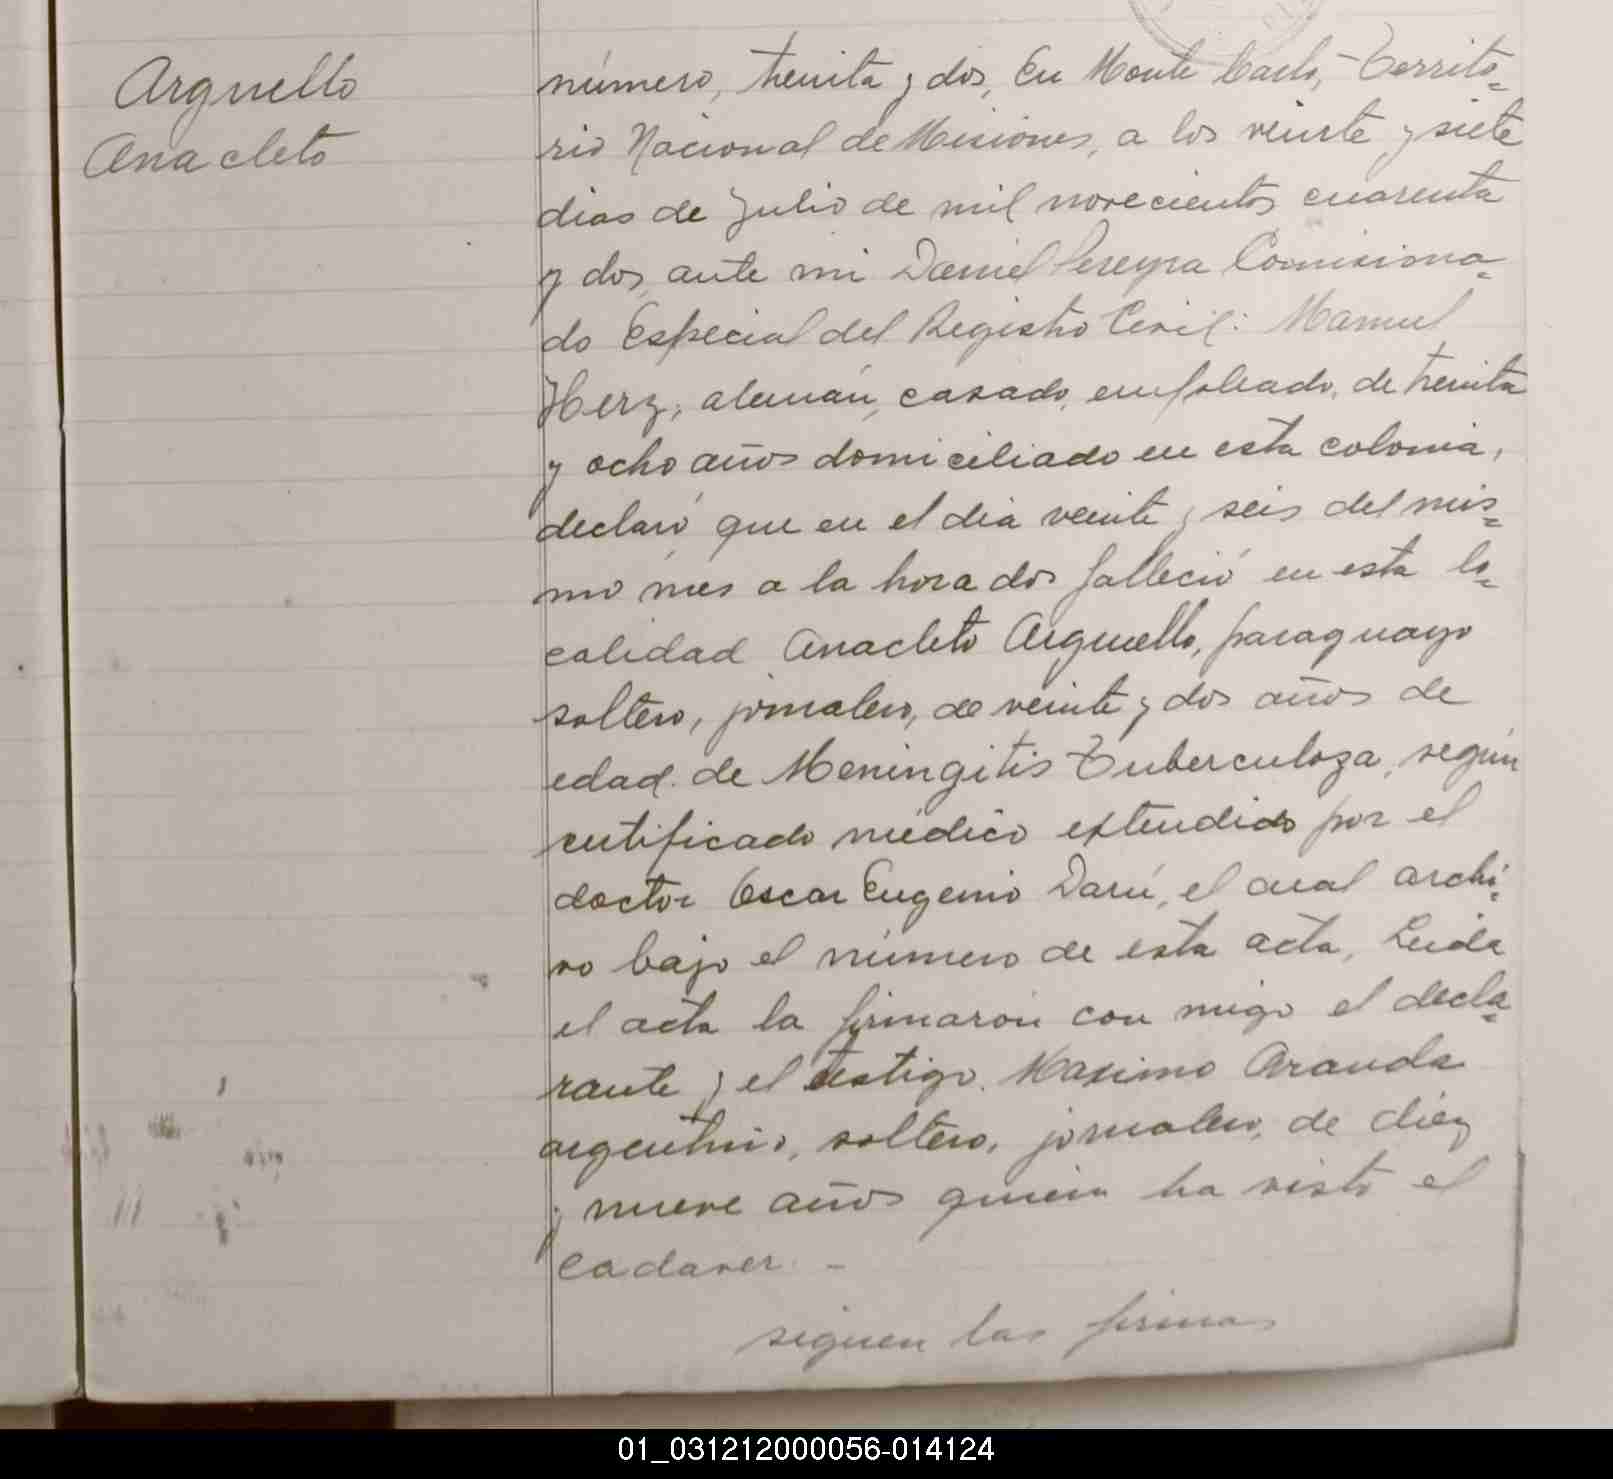 Arguello
Anacleto
número, treinta y dos, En Monte Carlo, Territo=
rio Nacional de Misiones, a los veinte y siete
dias de Julio de mil novecientos cuarenta
y dos, ante mi Daniel Pereyra Comisiona=
do Especial del Registro Civil: Manuel
Herz, alemán, casado, empleado, de treinta
y ocho años domiciliado en esta colonia,
declaró que en el dia veinte y seis del mis=
mo mes a la hora dos falleció en esta lo=
calidad Anacleto Arguello, paraguayo
soltero, jornalero, de veinte y dos años de
edad. de Meningitis Tuberculoza, según
certificado médico extendido por el
doctor Oscar Eugenio Darú, el cual archi=
vo bajo el número de esta acta, Leida
el acta la firmaron con migo el decla=
rante y el testigo. Maximo Aranda
argentino, soltero, jornalero, de diez
y nueve años quien ha visto el
cadaver. -
siguen las firmas
01_031212000056-014124